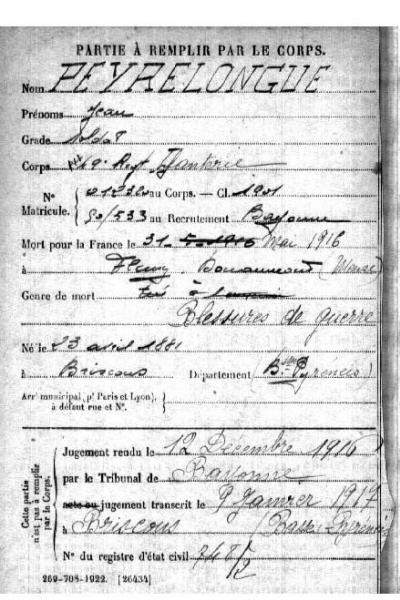 PARTIE À REMPLIR PAR LE CORPS.
Nom PEYRELONGUE
Prénoms Jean
Grade Soldat
Corps 49e Regt d'Infanterie
N° Matricule. au Corps. — Cl. 1901
au Recrutement Bayonne
Mort pour la France le 31 Mai 1916
à Fleury Douaumont (Meuse)
Genre de mort tué à l'ennemi
Blessures de guerre
Né le 23 avril 1881
à Briscous Département (Bses Pyrénées)
Arrt municipal, (pr Paris et Lyon),
à défaut rue et N°.
Cette partie
n'est pas à remplir
par le Corps.
Jugement rendu le 12 Décembre 1916
par le Tribunal de Bayonne
acte ou jugement transcrit le 9 Janvier 1917
à Briscous (Basses Pyrénées)
N° du registre d'état civil
269-708-1922. [26434]